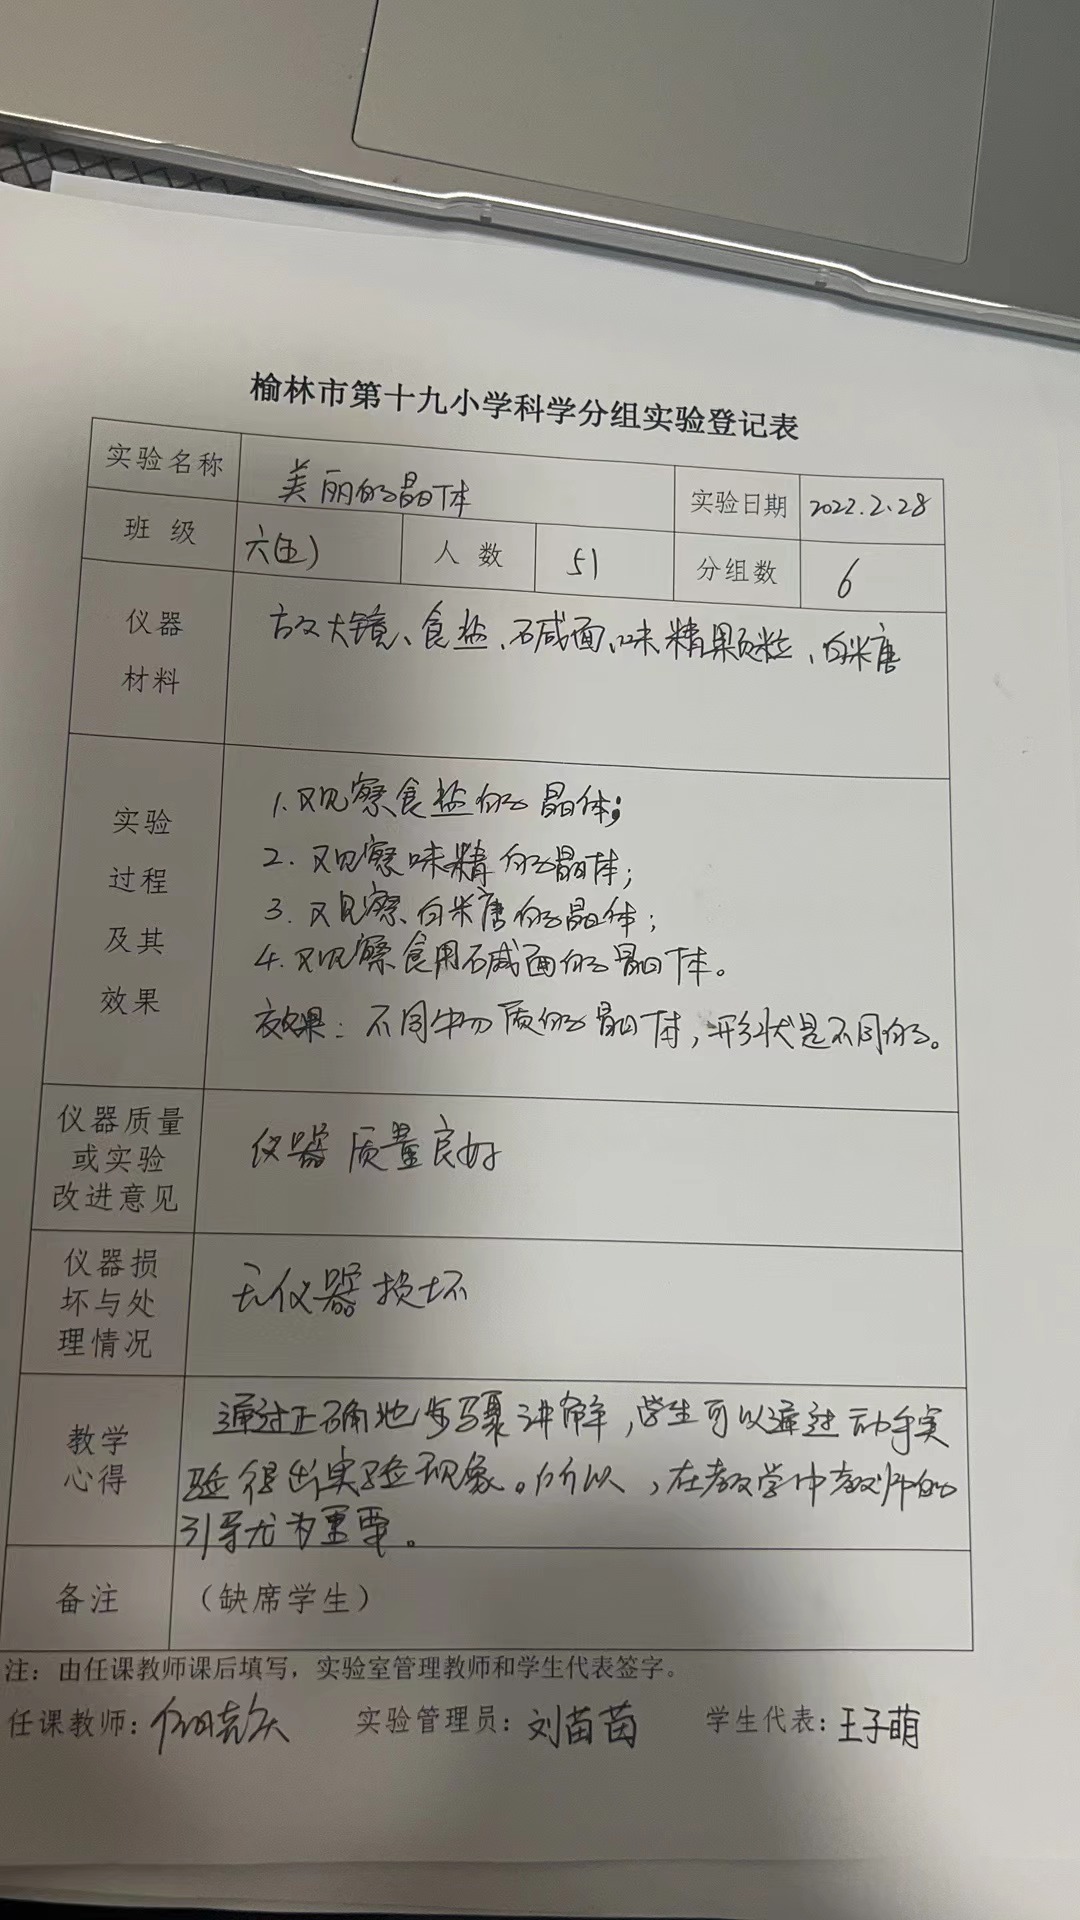 榆林市第十九小学科学分组实验登记表
实验名称 美丽的晶体 实验日期 2022.2.28
班 级 六(五) 人 数 51 分组数 6
仪器
材料
放大镜、食盐、碱面、味精颗粒、白糖
实验
过程
及其
效果
1.观察食盐的晶体;
2.观察味精的晶体;
3.观察白糖的晶体;
4.观察食用碱面的晶体。
效果:不同物质的晶体,形状是不同的。
仪器质量
或实验
改进意见
仪器质量良好
仪器损
坏与处
理情况
无仪器损坏
教学
心得
通过正确地步骤讲解,学生可以通过动手实
验得出实验现象。所以,在教学中教师的
引导尤为重要。
备注 (缺席学生)
注:由任课教师课后填写,实验室管理教师和学生代表签字。
任课教师: 实验管理员:刘苗苗 学生代表:王子萌